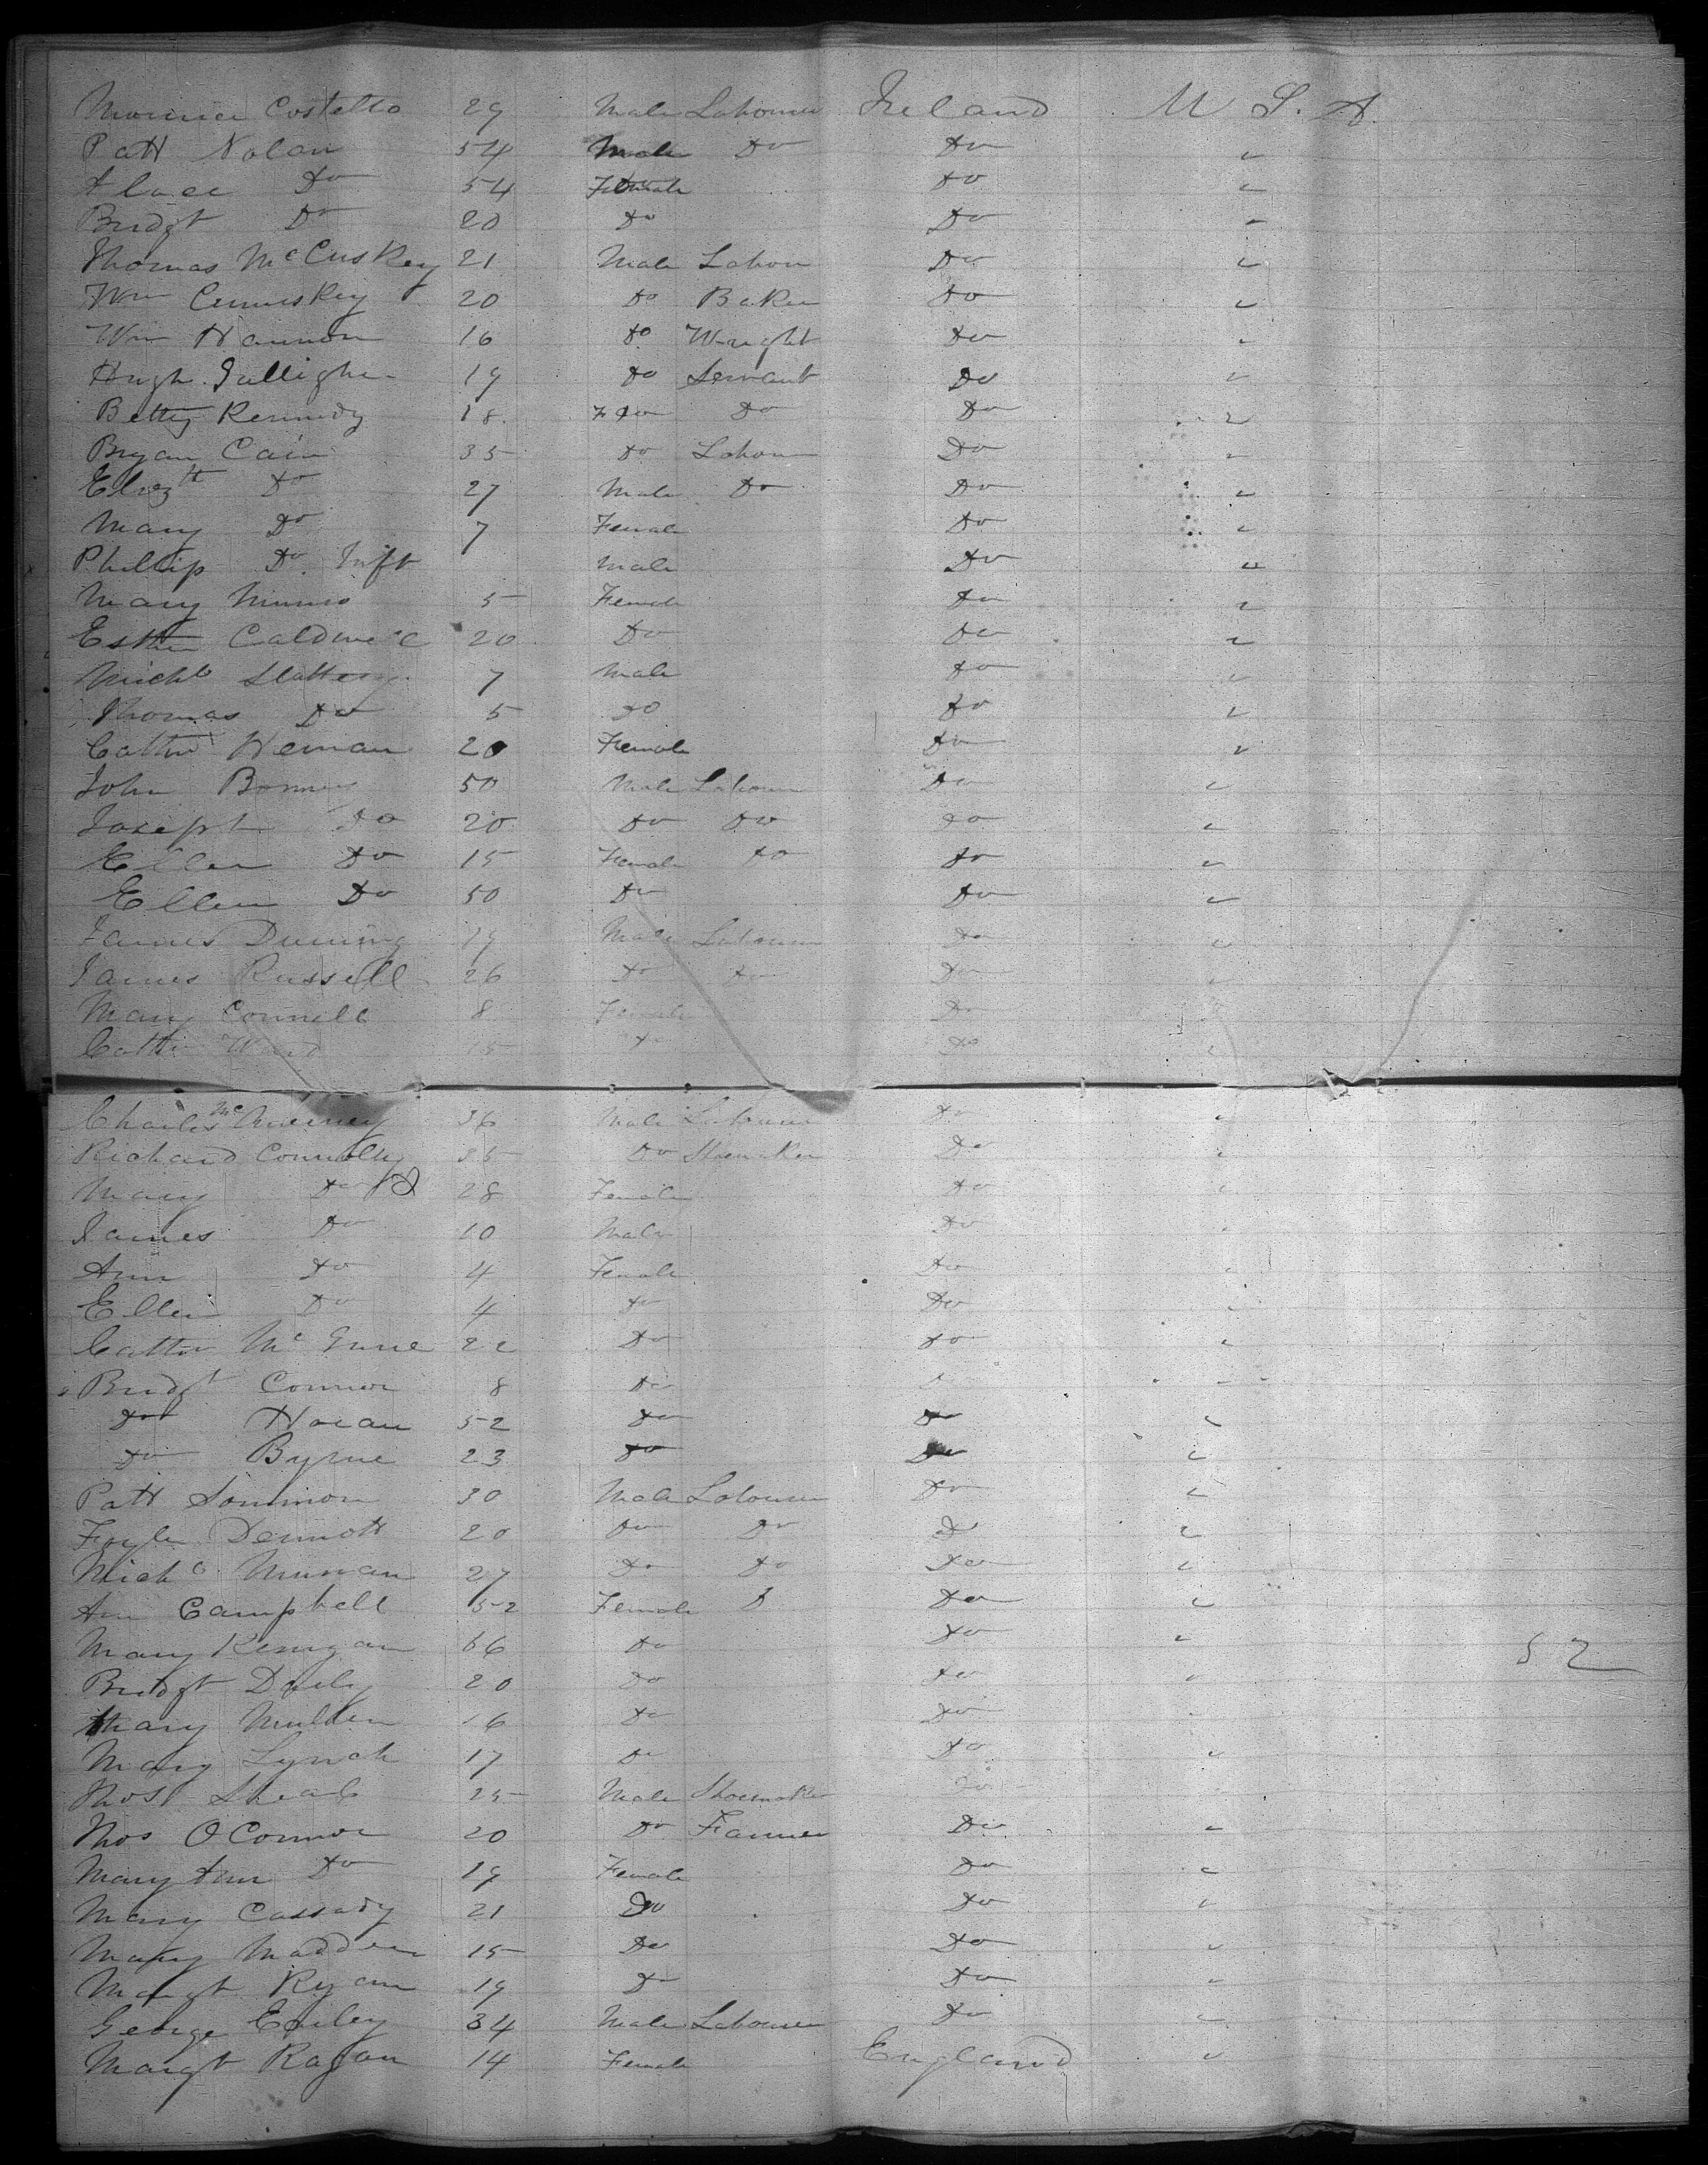 Maurice Costello 29 Male Labourer Ireland U S. A.
Patt Nolan 54 Male Do Do "
Alace Do 54 Female Do "
Bridgt Do 20 Do Do "
Thomas McCuskey 21 Male Labour Do "
Wm Cumiskey 20 Do Baker Do "
Wm Hannon 16 Do Wright Do "
Hugh Gulligher 19 Do Servant Do "
Betty Kennedy 18 F Do Do Do "
Bryan Cain 35 Do Labour Do "
Elizth Do 27 Male Do Do "
Mary Do 7 Female Do "
Phillip Do Inft Male Do "
Mary 5 Female Do "
Esther Caldwell 20 Do Do "
Michl Slattery 7 Male Do "
Thomas Do 5 Do Do "
Cathn Heman 20 Female Do "
John 50 Male Labourer Do "
Joseph Do 20 Do Do Do "
Ellen Do 15 Female Do Do "
Ellen Do 50 Do Do "
James 19 Male Labourer Do "
James Russell 26 Do Do Do "
Mary Connell 8 Female Do "
Cathn Ward 15 Do Do "
Charles 36 Male Labourer Do "
Richard Connolly 35 Do Shoemaker Do "
Mary Do 28 Female Do "
James Do 10 Male Do "
Ann Do 4 Female Do "
Ellen Do 4 Do Do "
Cathn Mc 22 Do Do "
Bridgt Connor 8 Do "
Do Horan 52 Do Do "
Do Byrne 23 Do Do "
Patt 30 Male Labourer Do "
Dermott 20 Do Do D "
Michl 27 Do Do Do "
Ann Campbell 52 Female D Do "
Mary Kerrigan 66 Do Do " 52
Bridgt Daily 20 Do Do "
Mary Mullen 16 Do Do
Mary Lynch 17 Do Do "
Thos 25 Male Shoemaker Do
Thos O Connor 20 Do Farmer Do "
Mary Ann Do 19 Female Do "
Mary Cassady 21 Do Do "
Mary Madden 15 Do Do "
Margt Ryan 19 Do Do "
George 34 Male Labourer Do "
Margt 14 Female England "